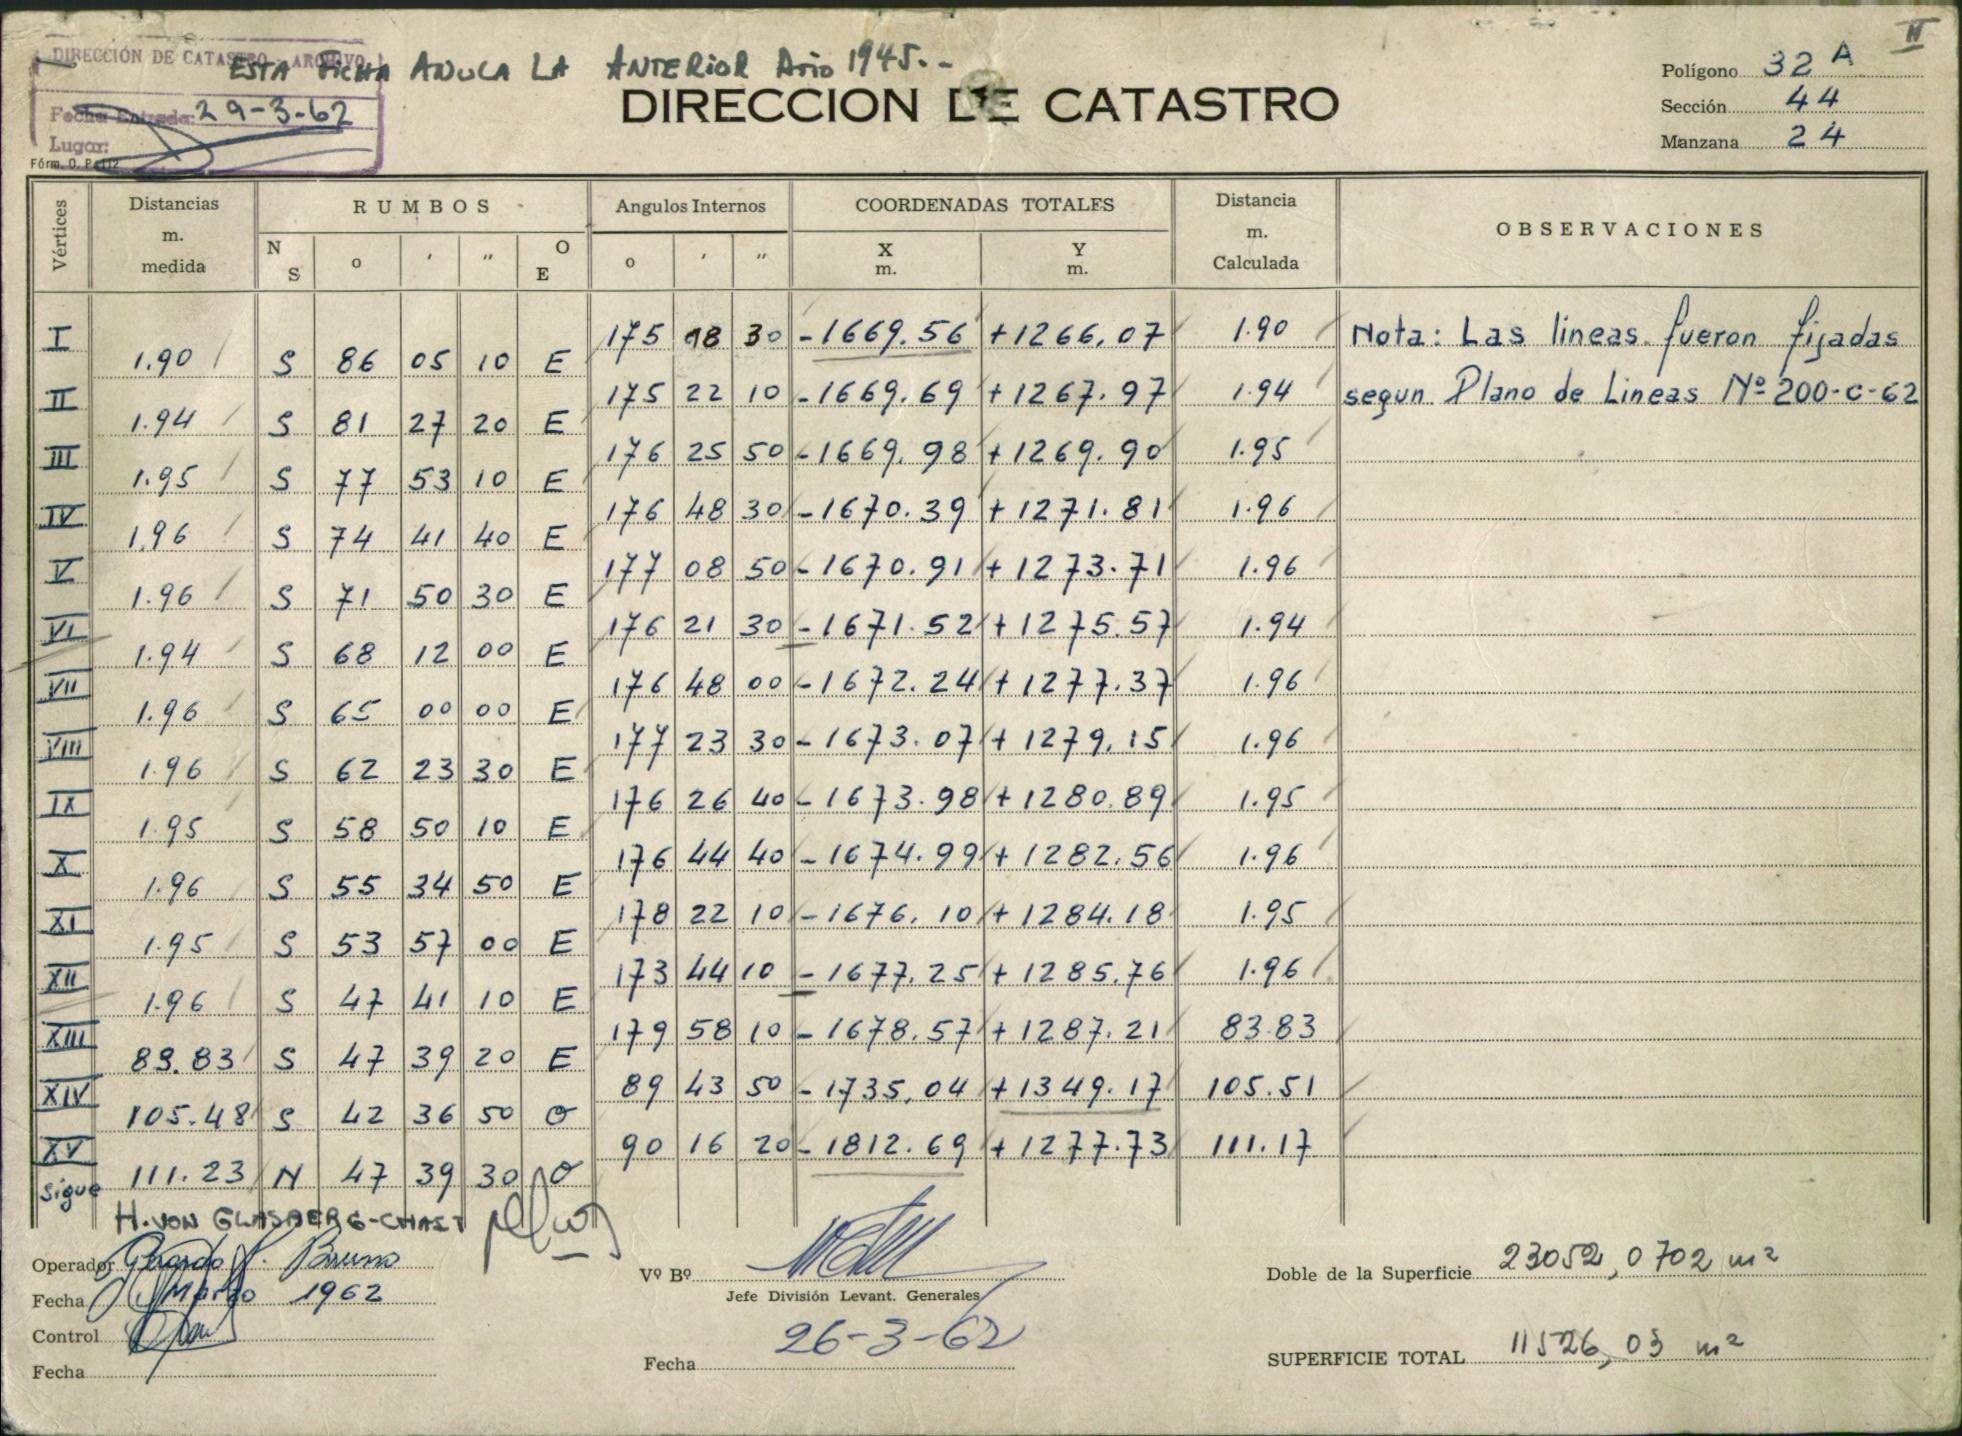 II
DIRECCIÓN DE CATASTRO - ARCHIVO
ESTA FICHA ANULA LA ANTERIOR Año 1945.-
Fecha Entrada: 29-3-62
Lugar:
Fórm. O. P. 112
DIRECCION DE CATASTRO
Polígono 32 A
Sección 44
Manzana 24
Vértices Distancias m. medida RUMBOS Angulos Internos COORDENADAS TOTALES Distancia m. Calculada OBSERVACIONES
N S o ' " O E o ' " X m. Y m.
I 175 18 30 -1669.56 +1266.07 1.90 Nota: Las lineas fueron fijadas
1.90 S 86 05 10 E
II 175 22 10 -1669.69 +1267.97 1.94 segun Plano de Lineas Nº 200-C-62
1.94 S 81 27 20 E
III 176 25 50 -1669.98 +1269.90 1.95
1.95 S 77 53 10 E
IV 176 48 30 -1670.39 +1271.81 1.96
1.96 S 74 41 40 E
V 177 08 50 -1670.91 +1273.71 1.96
1.96 S 71 50 30 E
VI 176 21 30 -1671.52 +1275.57 1.94
1.94 S 68 12 00 E
VII 176 48 00 -1672.24 +1277.37 1.96
1.96 S 65 00 00 E
VIII 177 23 30 -1673.07 +1279.15 1.96
1.96 S 62 23 30 E
IX 176 26 40 -1673.98 +1280.89 1.95
1.95 S 58 50 10 E
X 176 44 40 -1674.99 +1282.56 1.96
1.96 S 55 34 50 E
XI 178 22 10 -1676.10 +1284.18 1.95
1.95 S 53 57 00 E
XII 173 44 10 -1677.25 +1285.76 1.96
1.96 S 47 41 10 E
XIII 179 58 10 -1678.57 +1287.21 83.83
83.83 S 47 39 20 E
XIV 89 43 50 -1735.04 +1349.17 105.51
105.48 S 42 36 50 O
XV 90 16 20 -1812.69 +1277.73 111.17
sigue 111.23 N 47 39 30 O
H. VON GLASABERG-CHAST
Operador Gerardo Bruno
Fecha Marzo 1962
Control
Fecha
Vº Bº
Jefe División Levant. Generales
Fecha 26-3-62
Doble de la Superficie 23052,0702 m²
SUPERFICIE TOTAL 11526,03 m²